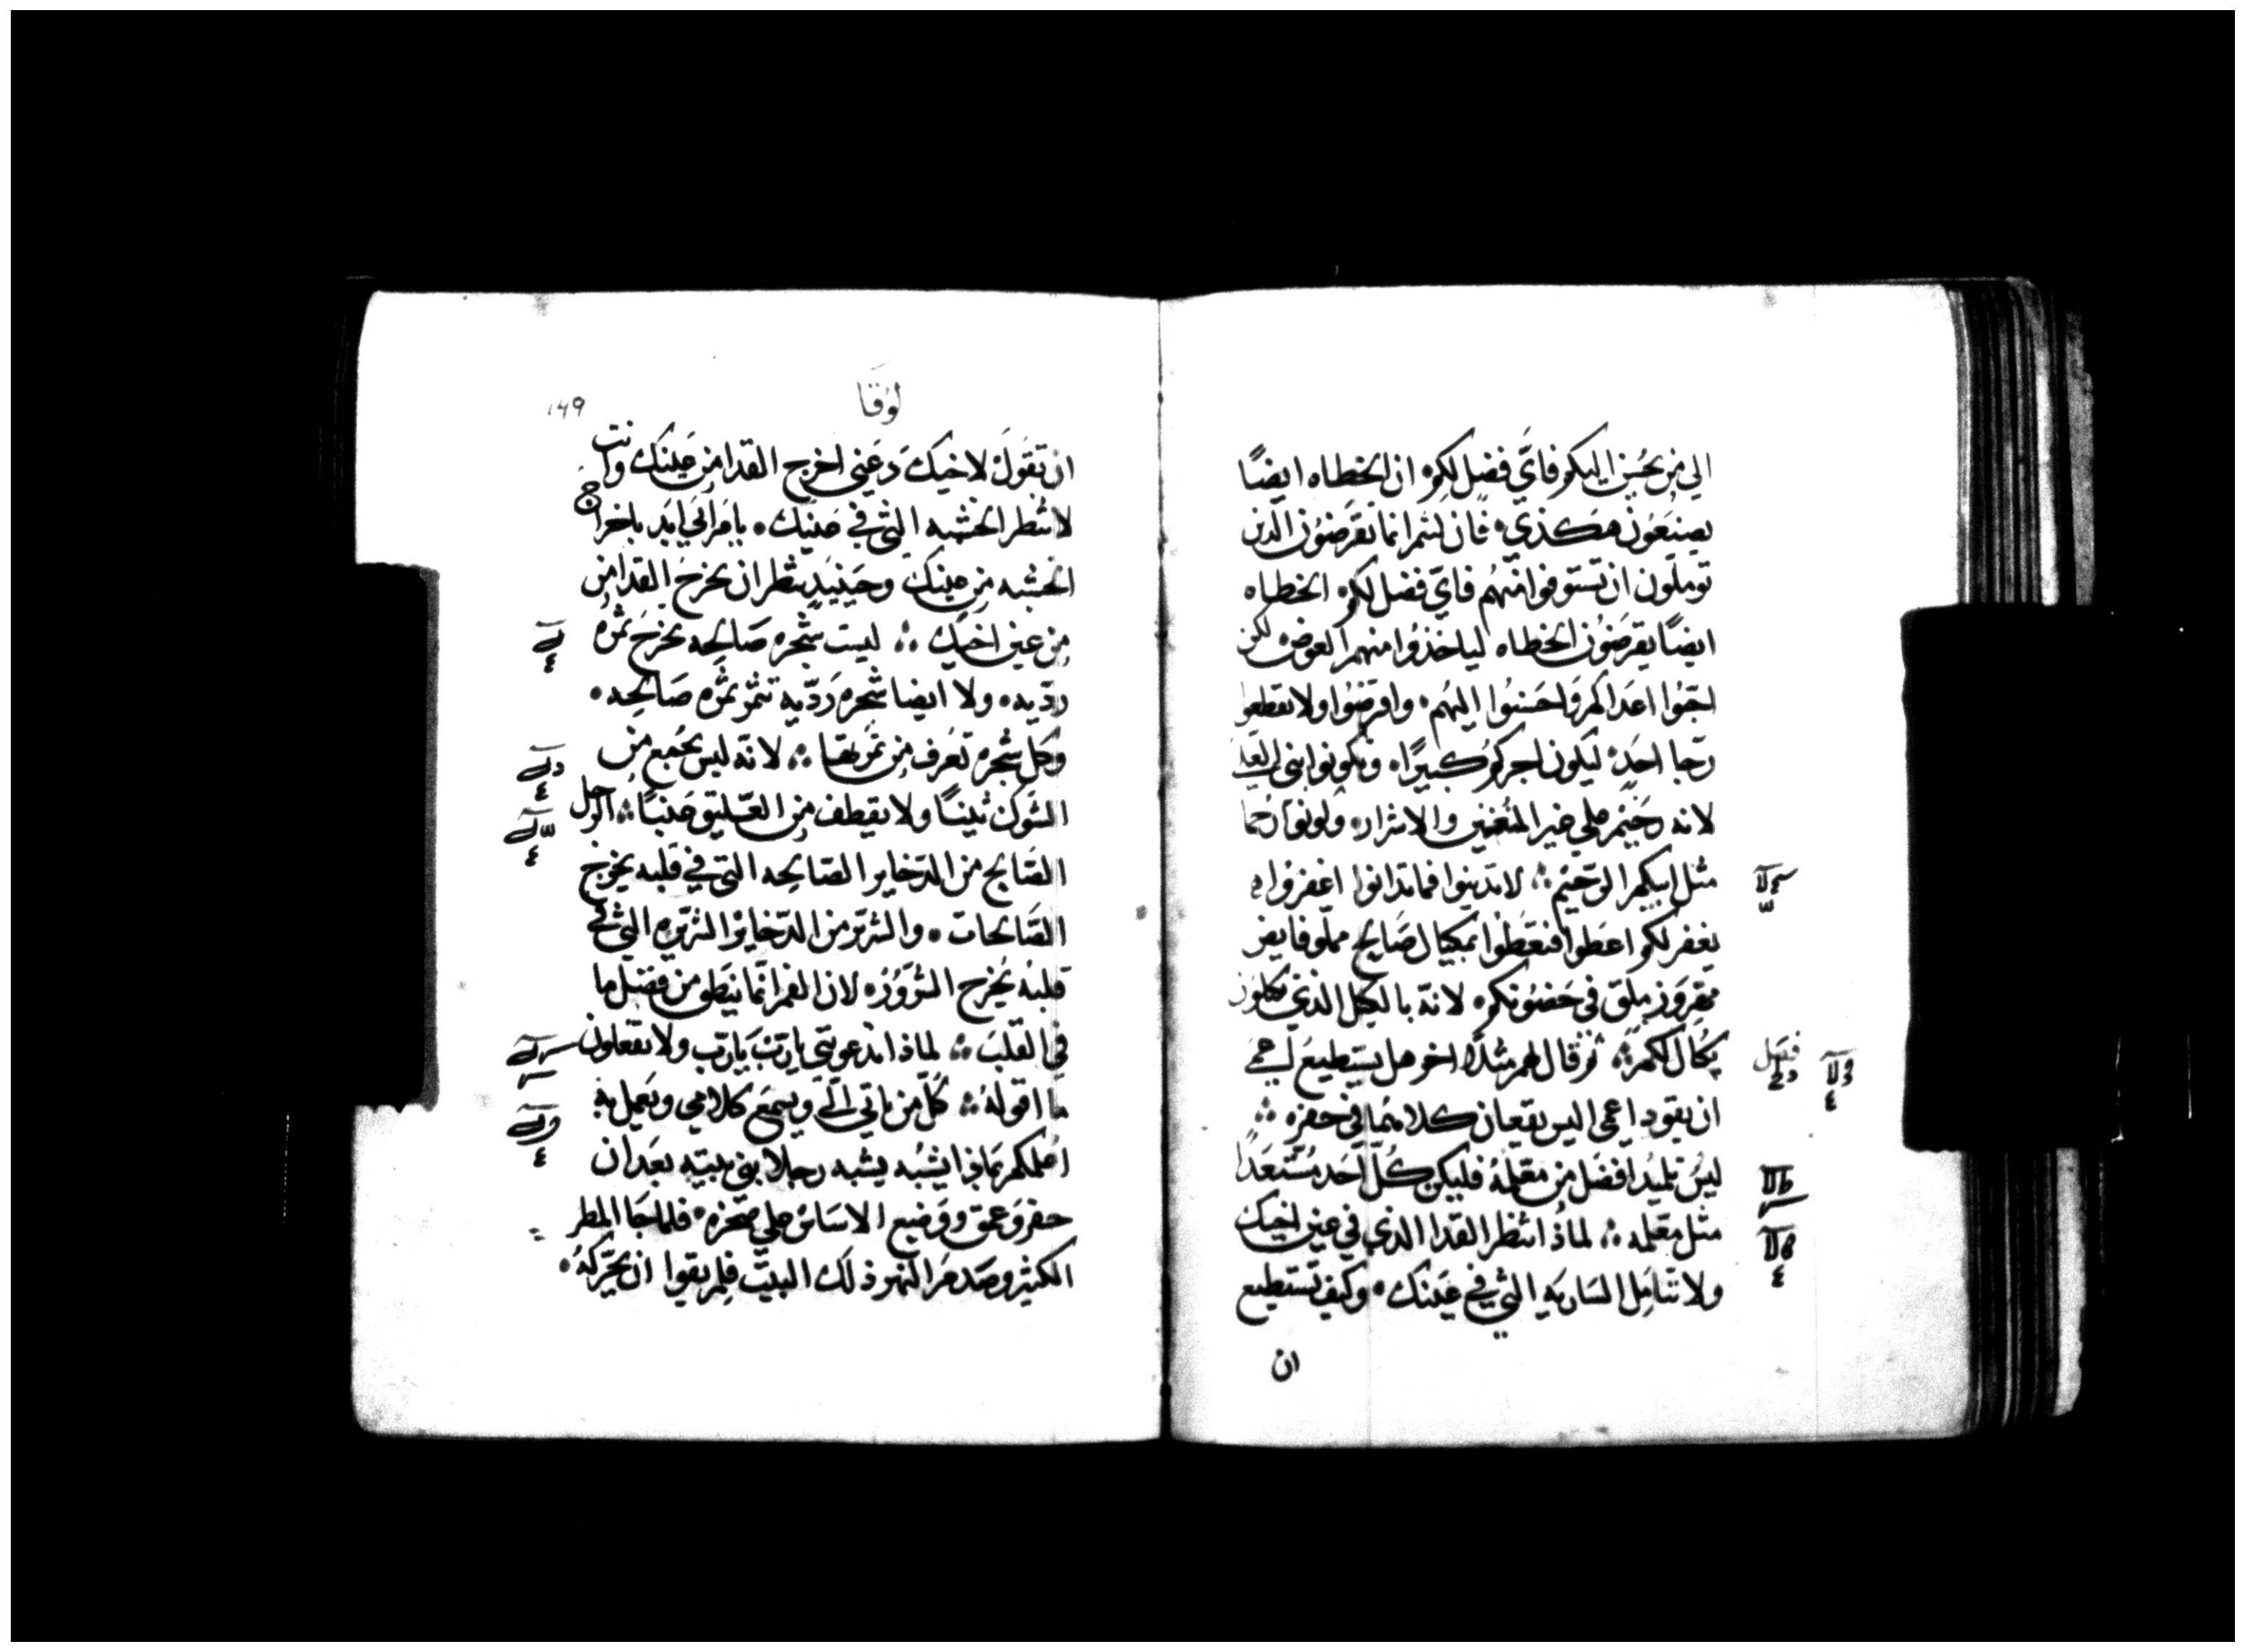 الي من يحسن اليكم فاي فضل لكم ان الخطاه ايضًا
يصنعون هكذي فان كنتم انما تقرضون الذين
توملون ان تستوفوا منهم فاي فضل لكم الخطاه
ايضًا يقرضون الخطاه لياخذوا منهم العوض لكن
احبوا اعداكم واحسنوا اليهم واقرضوا ولا تقطعوا
رجا احد ليكون اجركم كبيرًا وتكونوا بني العلي
لانه رحيم علي غير المنعمين والاشرار وكونوا رحما
مثل ابيكم الرحيم لا تدينوا فما تدانوا اغفروا
يغفر لكم اعطوا فتعطوا بمكيال صالح مملو فايض
يلقي في حضونكم لانه بالكيل الذي تكيلون
يكال لكم ثم قال لهم مثلًا اخر هل يستطيع اعمى
فصل
ان يقود اعمى اليس يقعان كلاهما في حفره
ليس تلميد افضل من معلمه فليكن كل احد مستعدًا
مثل معلمه لماذا تنظر القدا الذي في عين اخيك
ولا تتامل الساريه التي في عينك وكيف تستطيع
ان
لوقا
149
ان تقول لاخيك دعني اخرج القدا من عينك وانت
لا تنظر الخشبه التي في عينك يا مرائي ابد باخراج
الخشبه من عينك وحينيد تنظر ان تخرج القدا من
من عين اخيك ليست شجره صالحه تخرج ثمره
رديه ولا ايضا شجره رديه تثمر ثمره صالحه
وكل شجره تعرف من ثمرتها لانه ليس يجمع من
الشوك تينًا ولا يقطف من العليق عنبًا الرجل
الصالح من الدخاير الصالحه التي في قلبه يخرج
الصالحات والشرير من الدخاير الشريره التي في
قلبه يخرج الشرور لان الفم انما ينطق من فضل ما
في القلب لماذا تدعونني يا رب يا رب ولا تفعلون
ما اقوله كل من ياتي الي ويسمع كلامي ويعمل به
اعلمكم بماذا يشبه يشبه رجلا بنى بيته بعد ان
حفر وعمق ووضع الاساس علي صخره فلما جا المطر
الكثير وصدم النهر ذلك البيت فلم يقوا ان يحركه